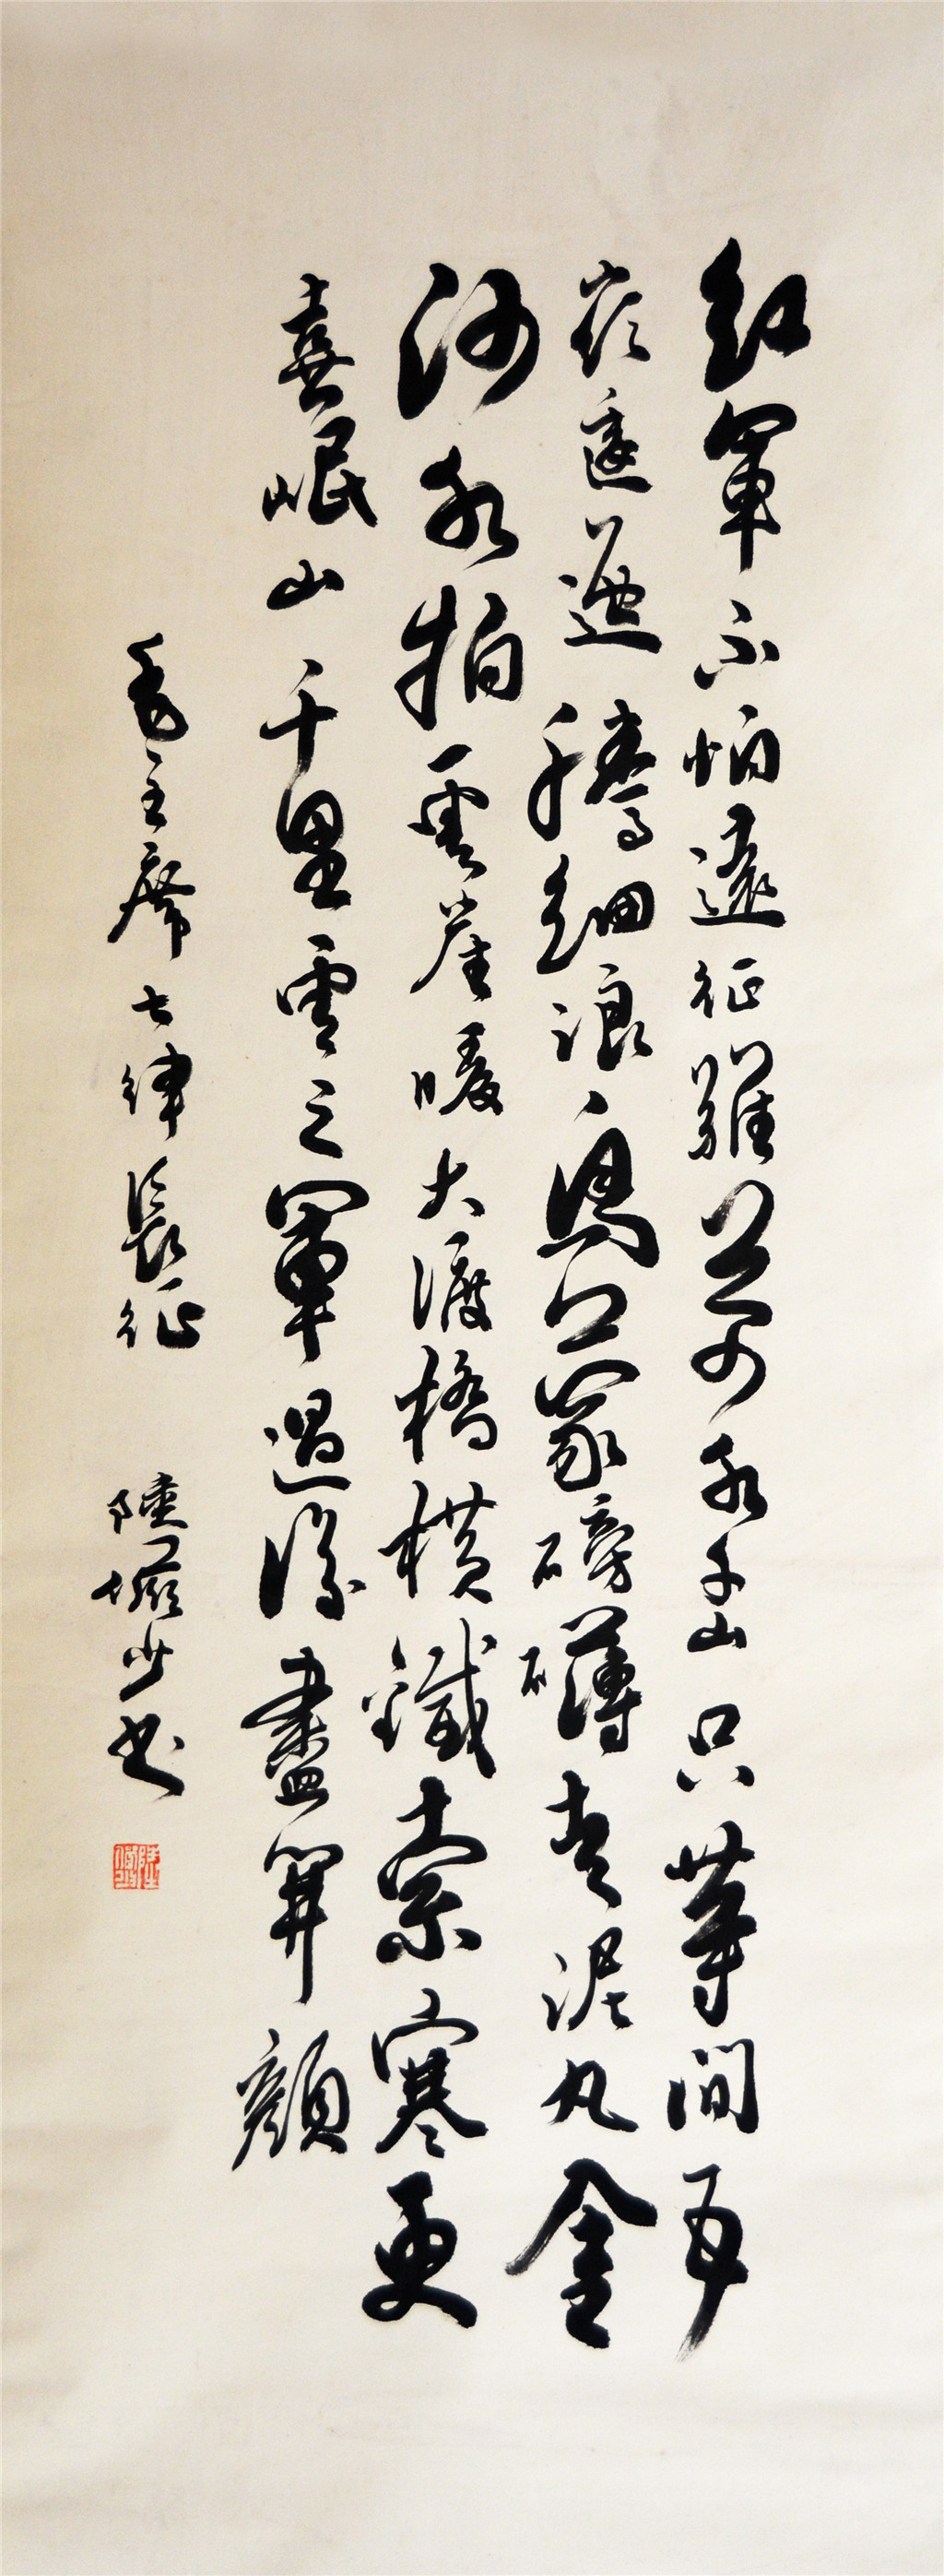 紅軍不怕遠征難萬水千山只等間五
嶺逶迤騰細浪烏蒙磅礴走泥丸金
沙水拍雲崖暖大渡橋橫鐵索寒更
喜岷山千里雪三軍過後盡開顏
毛主席七律長征 陸儼少书